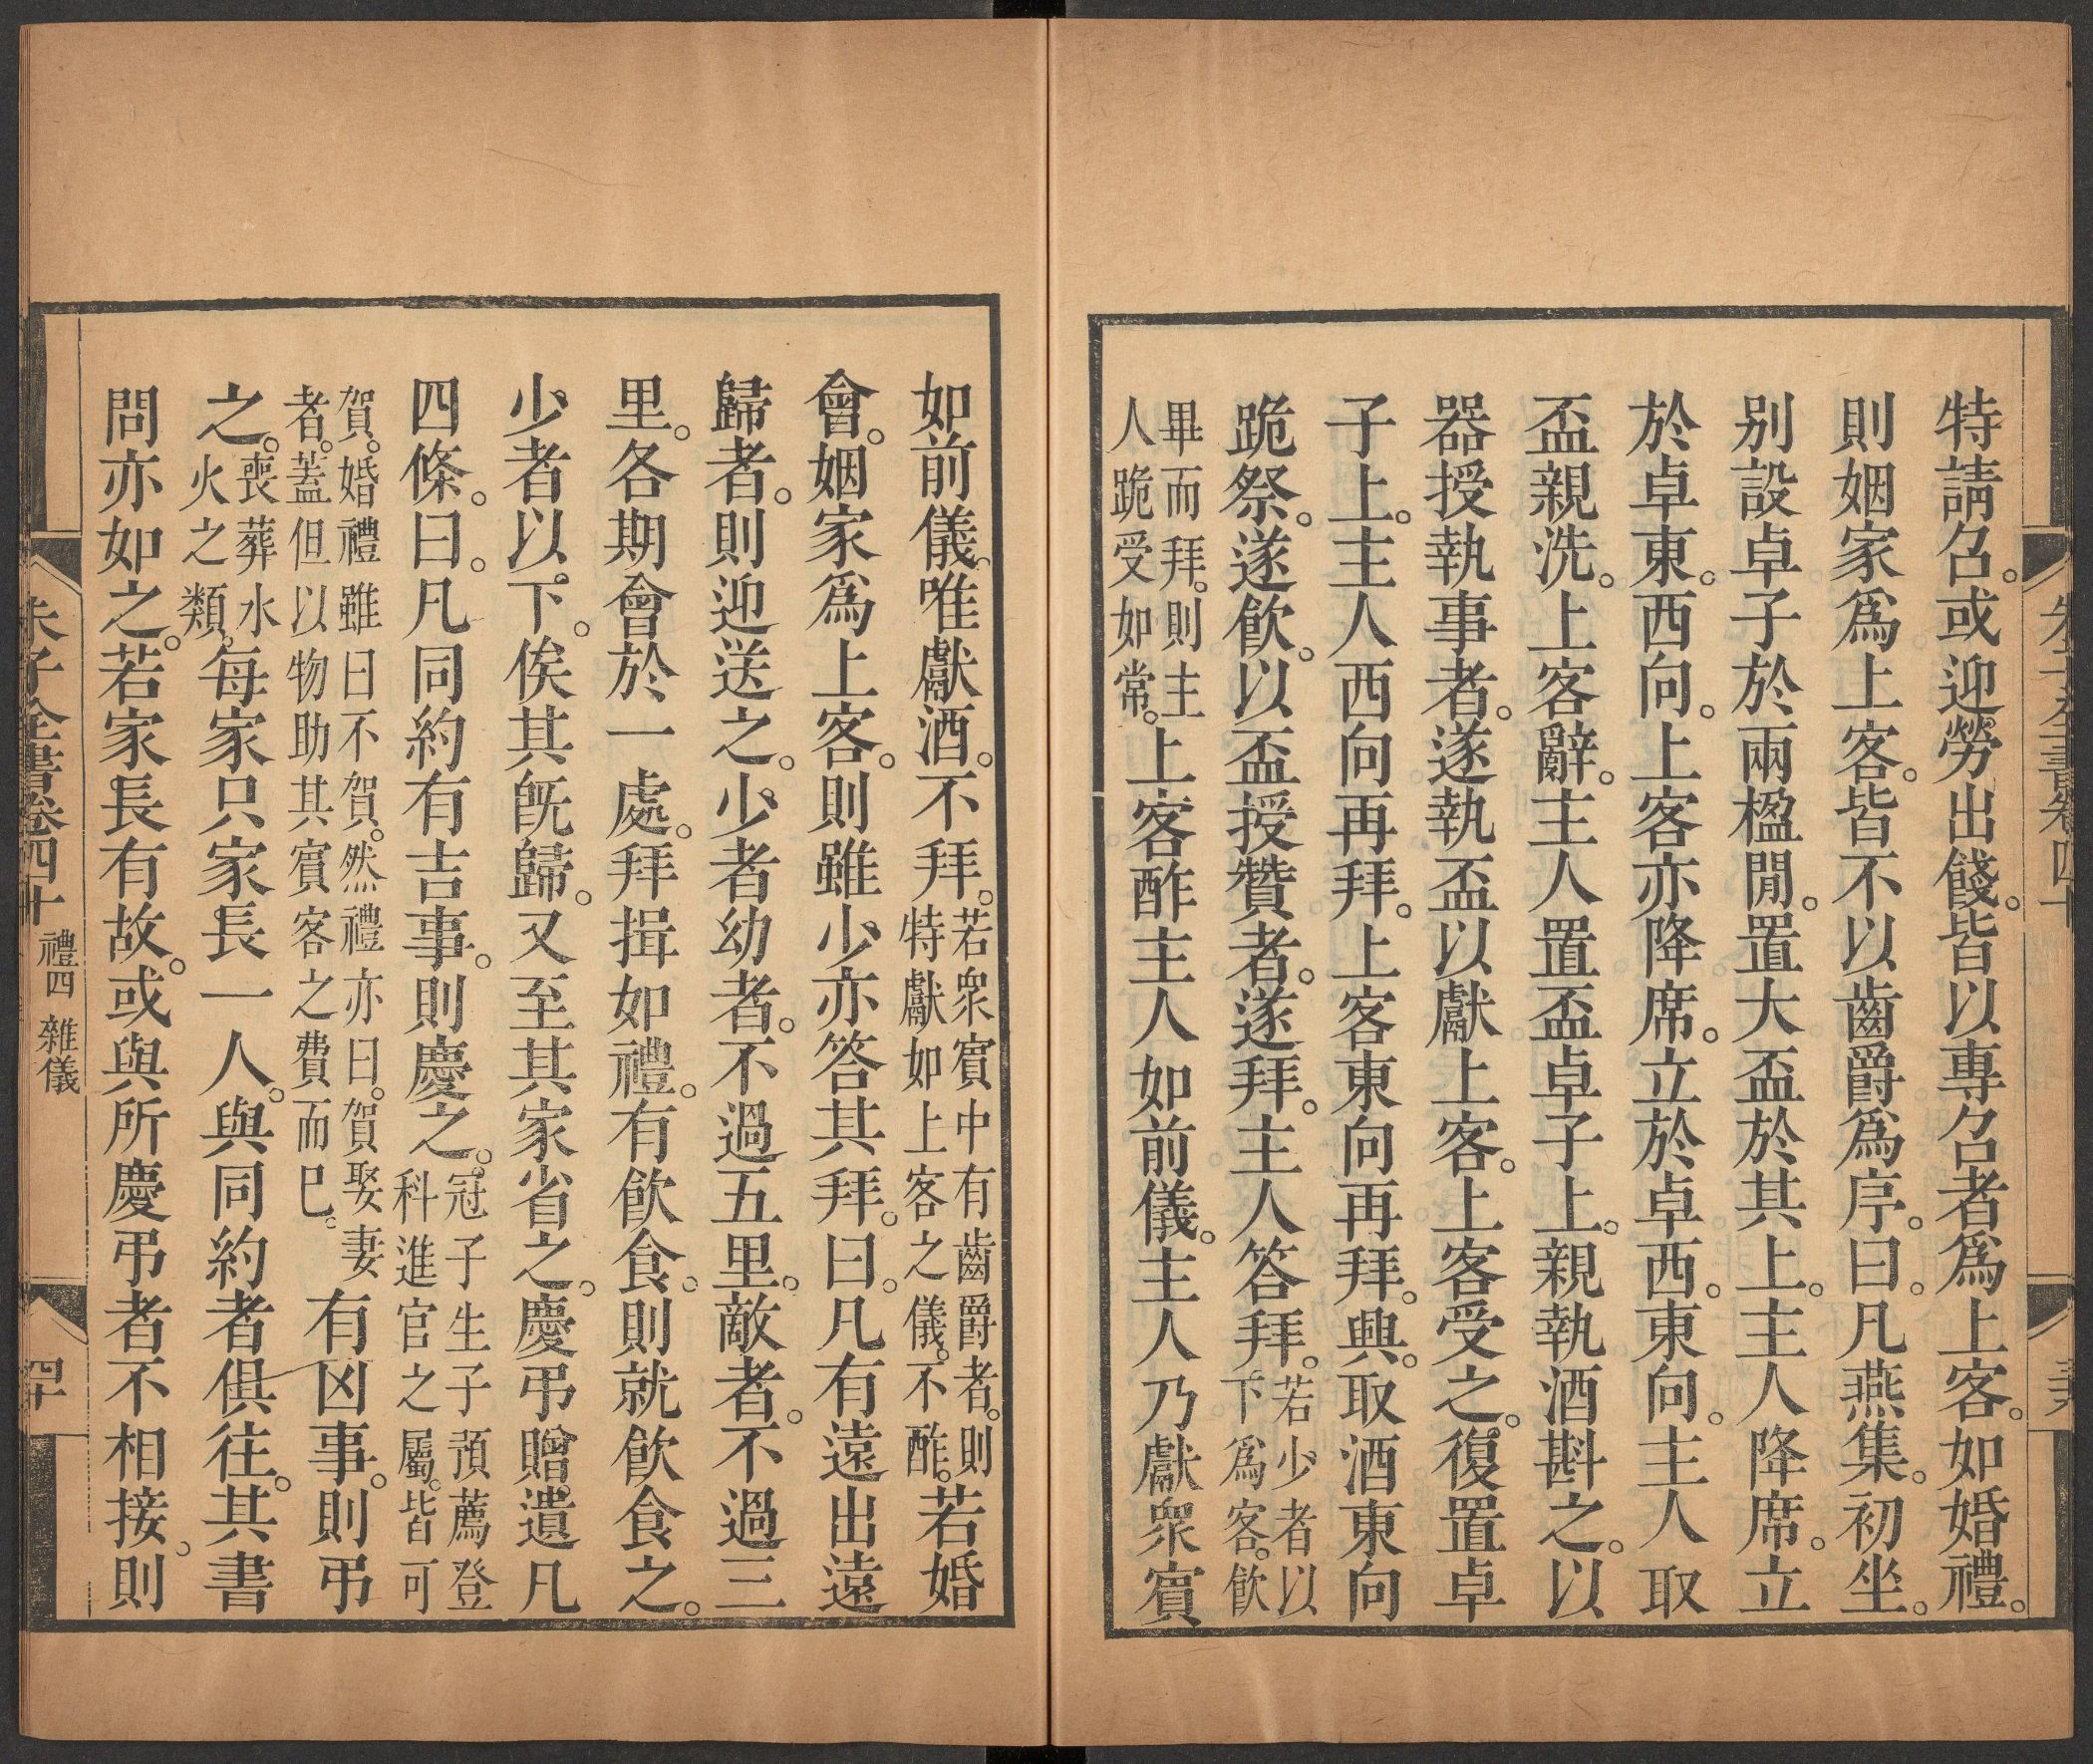 特請召。或迎勞出餞。皆以專召者爲上客。如婚禮。
則姻家爲上客。皆不以齒爵爲序。曰。凡燕集。初坐。
别設卓子於兩楹閒。置大盃於其上。主人降席。立
於卓東。西向。上客亦降席。立於卓西。東向。主人取
盃親洗。上客辭。主人置盃卓子上。親執酒斟之。以
器授執事者。遂執盃以獻上客。上客受之。復置卓
子上。主人西向再拜。上客東向再拜。興。取酒東向
跪祭。遂飮。以盃授贊者。遂拜。主人答拜。若少者以
下爲客。飮
畢而拜。則主
人跪受如常。上客酢主人如前儀。主人乃獻衆賓
如前儀。唯獻酒。不拜。若衆賓中有齒爵者。則
特獻如上客之儀。不酢。若婚
會。姻家爲上客。則雖少亦答其拜。曰。凡有遠出遠
歸者。則迎送之。少者幼者。不過五里。敵者。不過三
里。各期會於一處。拜揖如禮。有飮食。則就飮食之。
少者以下。俟其旣歸。又至其家省之。慶弔贈遺凡
四條。曰。凡同約有吉事。則慶之。冠子生子預薦登
科進官之屬。皆可
賀。婚禮雖曰不賀。然禮亦曰。賀娶妻
者。蓋但以物助其賓客之費而巳。有凶事。則弔
之。喪葬水
火之類。每家只家長一人。與同約者俱往。其書
問亦如之。若家長有故。或與所慶弔者不相接。則
朱子全書卷四十 禮四 雜儀
四十